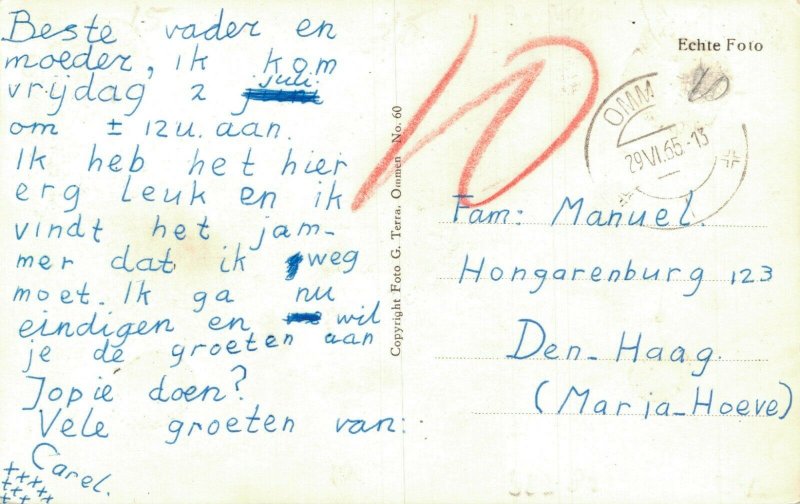 Beste vader en
moeder, ik kom
juli
vrijdag 2
om ± 12 u. aan.
Ik heb het hier
erg leuk en ik
vindt het jam-
mer dat ik weg
moet. Ik ga nu
eindigen en wil
je de groeten aan
Jopie doen?
Vele groeten van:
Carel.
+++++
Copyright Foto G. Terra. Ommen - No. 60
10
Echte Foto
10
OMM
29 VI.65-13
Fam: Manuel.
Hongarenburg 123
Den-Haag.
(Maria-Hoeve)